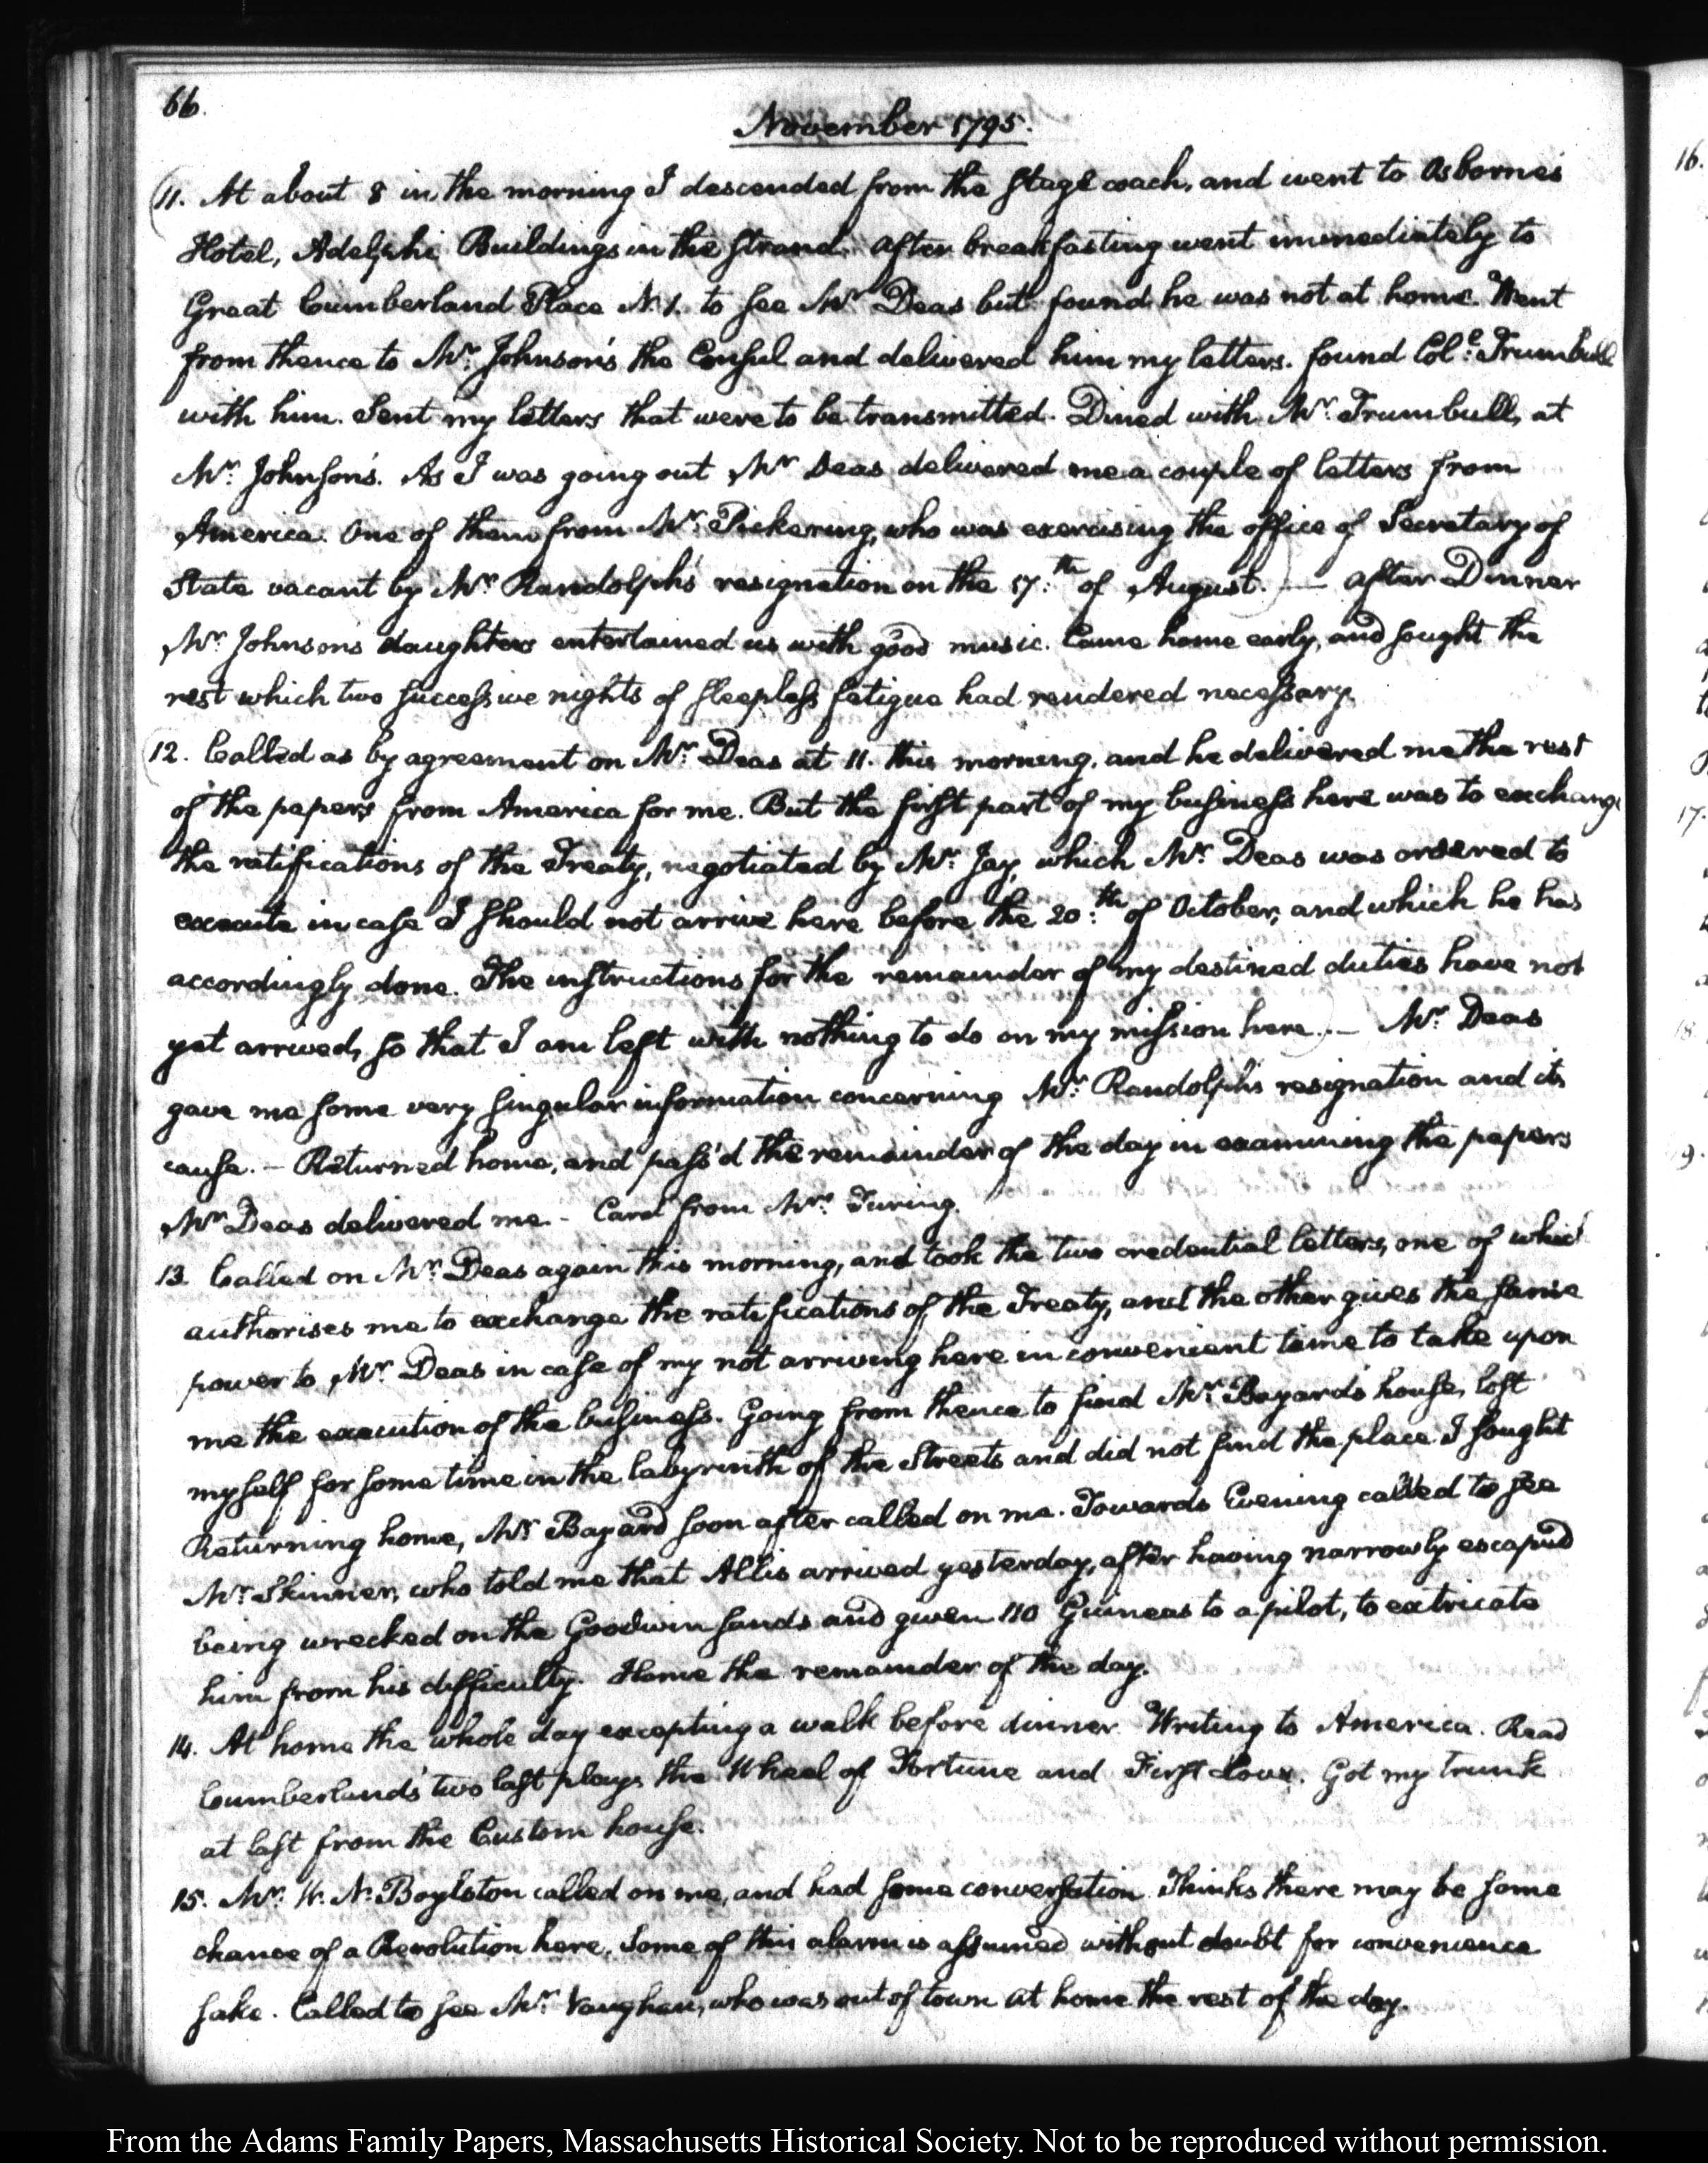 66.
November 1795.
11. At about 8 in the morning I descended from the Stage coach, and went to Osborne's
Hotel, Adelphi Buildings in the Strand. After breakfasting went immediately to
Great Cumberland Place N. 1. to see Mr. Deas but found he was not at home. Went
from thence to Mr. Johnson's the Consul and delivered him my letters. found Coll: Trumbull
with him. Sent my letters that were to be transmitted. Dined with Mr. Trumbull, at
Mr. Johnson's. As I was going out Mr. Deas delivered me a couple of letters from
America. One of them from Mr. Pickering, who was exercising the office of Secretary of
State vacant by Mr. Randolph's resignation on the 17:th of August. — After Dinner
Mr. Johnson's daughters entertained us with good music. Came home early, and sought the
rest which two successive nights of sleepless fatigue had rendered necessary.
12. Called as by agreement on Mr. Deas at 11. this morning, and he delivered me the rest
of the papers from America for me. But the first part of my business here was to exchange
the ratifications of the Treaty, negotiated by Mr. Jay, which Mr. Deas was ordered to
execute in case I should not arrive here before the 20:th of October, and which he has
accordingly done. The instructions for the remainder of my destined duties have not
yet arrived, so that I am left with nothing to do on my mission here. — Mr. Deas
gave me some very singular information concerning Mr. Randolph's resignation and its
cause. — Returned home, and pass'd the remainder of the day in examining the papers
Mr. Deas delivered me. — Card from Mr. Turing.
13. Called on Mr. Deas again this morning, and took the two credential letters, one of which
authorises me to exchange the ratifications of the Treaty, and the other gives the same
power to Mr. Deas in case of my not arriving here in convenient time to take upon
me the execution of the business. Going from thence to find Mr. Bayard's house, lost
myself for some time in the labyrinth of the Streets and did not find the place I sought
Returning home, Mr. Bayard soon after called on me. Towards Evening called to see
Mr. Skinner, who told me that Allis arrived yesterday, after having narrowly escaped
being wrecked on the Goodwin sands and given 110 Guineas to a pilot, to extricate
him from his difficulty. Home the remainder of the day.
14. At home the whole day excepting a walk before dinner. Writing to America. Read
Cumberland's two last plays the Wheel of Fortune and First Love. Got my trunk
at last from the Custom house.
15. Mr. W. N. Boylston called on me, and had some conversation. Thinks there may be some
chance of a Revolution here. Some of this alarm is assumed without doubt for convenience
sake. Called to see Mr. Vaughan, who was out of town at home the rest of the day.
16.
17.
18.
19.
From the Adams Family Papers, Massachusetts Historical Society. Not to be reproduced without permission.